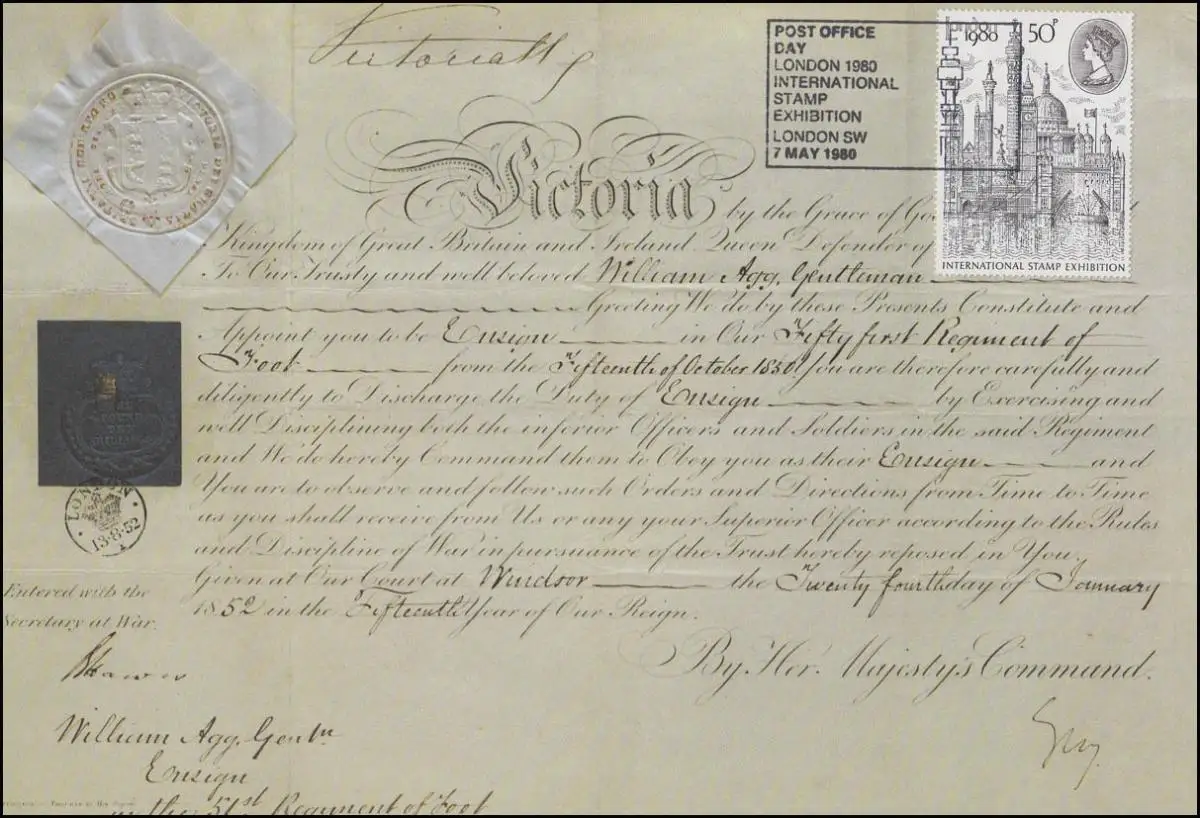 Victoria R
POST OFFICE
DAY
LONDON 1980
INTERNATIONAL
STAMP
EXHIBITION
LONDON SW
7 MAY 1980
London
1980
50P
INTERNATIONAL STAMP EXHIBITION
Victoria by the Grace of Go
Kingdom of Great Britain and Ireland Queen Defender of
To Our Trusty and well beloved William Agg, Gentleman
Greeting We do by these Presents Constitute and
Appoint you to be Ensign in Our Fifty first Regiment of
Foot from the Fifteenth of October 1850 You are therefore carefully and
diligently to Discharge the Duty of Ensign by Exercising and
well Disciplining both the inferior Officers and Soldiers in the said Regiment
and We do hereby Command them to Obey you as their Ensign and
You are to observe and follow such Orders and Directions from Time to Time
as you shall receive from Us or any your Superior Officer according to the Rules
and Discipline of War in pursuance of the Trust hereby reposed in You.
Given at Our Court at Windsor the Twenty fourth day of January
1852 in the Fifteenth Year of Our Reign.
By Her Majesty's Command.
LONDON
13·8·52
Entered with the
Secretary at War.
William Agg, Gentn
Ensign
in the 51st Regiment of Foot